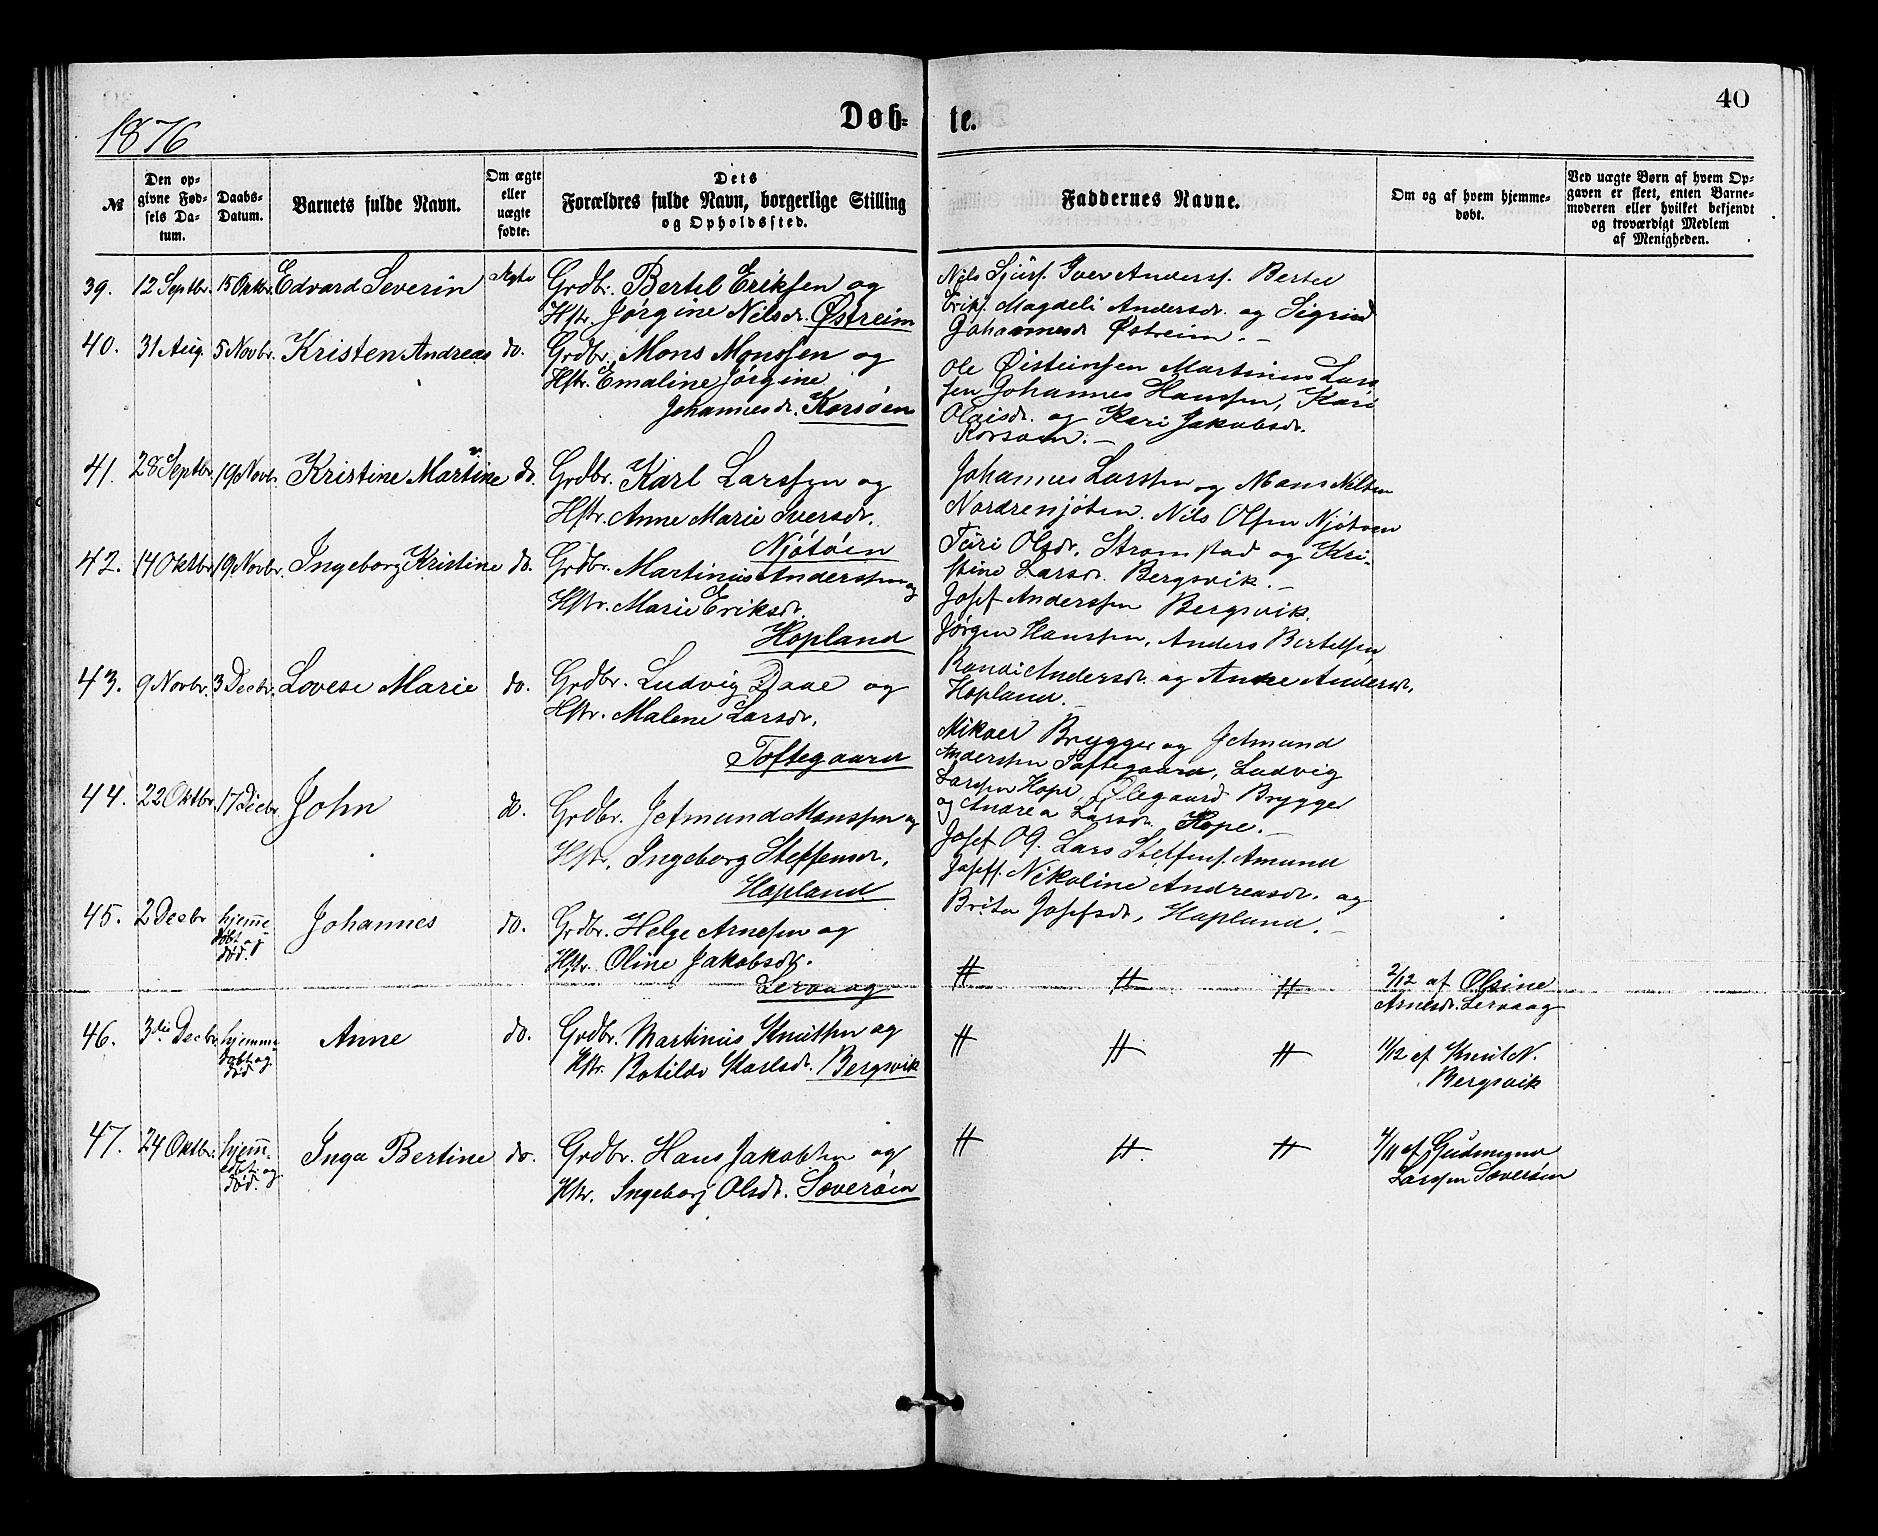 1876
Døb-
te.
40
№
Den op-
givne Fød-
sels Da-
tum.
Daabs-
Datum.
Barnets fulde Navn.
Om ægte
eller
uægte
fødte:
Dets
Forældres fulde Navn, borgerlige Stilling
og Opholdssted.
Faddernes Navne.
Om og af hvem hjemme-
døbt.
Ved uægte Børn af hvem Op-
gaven er skeet, enten Barne-
moderen eller hvilket bekjendt
og troværdigt Medlem
af Menigheden.
39. 12 Septbr. 15 Oktbr. Edvard Severin Ægte
Grdbr. Bertel Eriksen og
Hstr. Jørgine Nilsdr. Østreim
Nils Sjurs. Iver Anderss. Bertel
Eriks. Magdeli Andersdr. og Sigrid
Johannesdr Østreim. —
40. 31 Aug. 5 Novbr. Kristen Andreas do.
Grdbr. Mons Monssen og
Hstr. Emaline Jørgine
Johannesdr. Korsøen
Ole Øisteinsen Martinus Lars
sen Johannes Hanssen, Kari
Olaisdr. og Kari Jakobsdr.
Korsøen. —
41. 28 Septbr. 19 Novbr. Kristine Martine do.
Grdbr. Karl Larssen og
Hstr. Anne Marie Iversdr.
Njøtøen
Johannes Larssen og Mons Nilsen
Nordrenjøten. Nils Olsen Njøtøen
Turi Olsdr. Stromstad og Kri-
stine Larsdr. Bergsvik. —
42. 14 Oktbr. 19 Novbr. Ingeborg Kristine do.
Grdbr. Martinus Anderssen og
Hstr. Marie Eriksdr.
Hopland
Josef Anderssen Bergsvik.
Jørgen Hanssen, Anders Bertelsen,
Randi Andersdr. og Anne Andersdr.
Hopland. —
43. 9 Novbr. 3 Decbr. Lovise Marie do.
Grdbr. Ludvig Daae og
Hstr. Malene Larsdr.
Toftegaard
Mikael Brygger og Jetmund
Anderssen Toftegaard, Ludvig
Larssen Hope, Olegaard Brygger
og Andrea Larsdr. Hope. —
44. 22 Oktbr. 17 Decbr. John do.
Grdbr. Jetmund Monssen og
Hstr. Ingeborg Steffensdr.
Hopland
Josef O G. Lars Steffens. Amund
Josefs. Nikoline Andreasdr. og
Brita Josefsdr. Hopland. —
45. 2 Decbr hjemme
døbt og
død.
Johannes do.
Grdbr. Helge Arnesen og
Hstr. Oline Jakobsdr.
Lervaag
〃 〃 〃
2/12 af Olsine
Arnesdr Lervaag
46. 3die Decbr hjemme
døbt og
død
Anne do.
Grdbr. Martinus Knutsen og
Hstr. Botilde Karlsdr. Bergsvik
〃 〃 〃
11/12 af Knut N.
Bergsvik
47. 24 Oktbr. hjem-
døbt og
død.
Inga Bertine do.
Grdbr. Hans Jakobsen og
Hstr. Ingeborg Olsdr. Sæverøen
〃 〃 〃
4/11 af Gudmund
Larssen Sæverøen